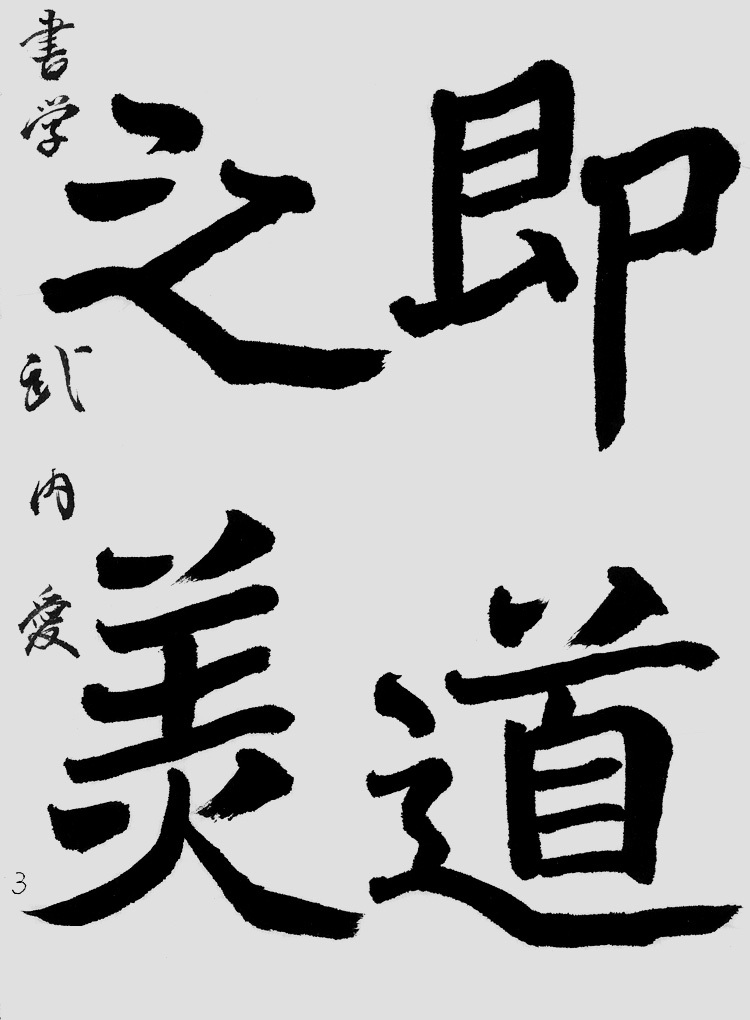 即道
之美
書学 武内愛
3